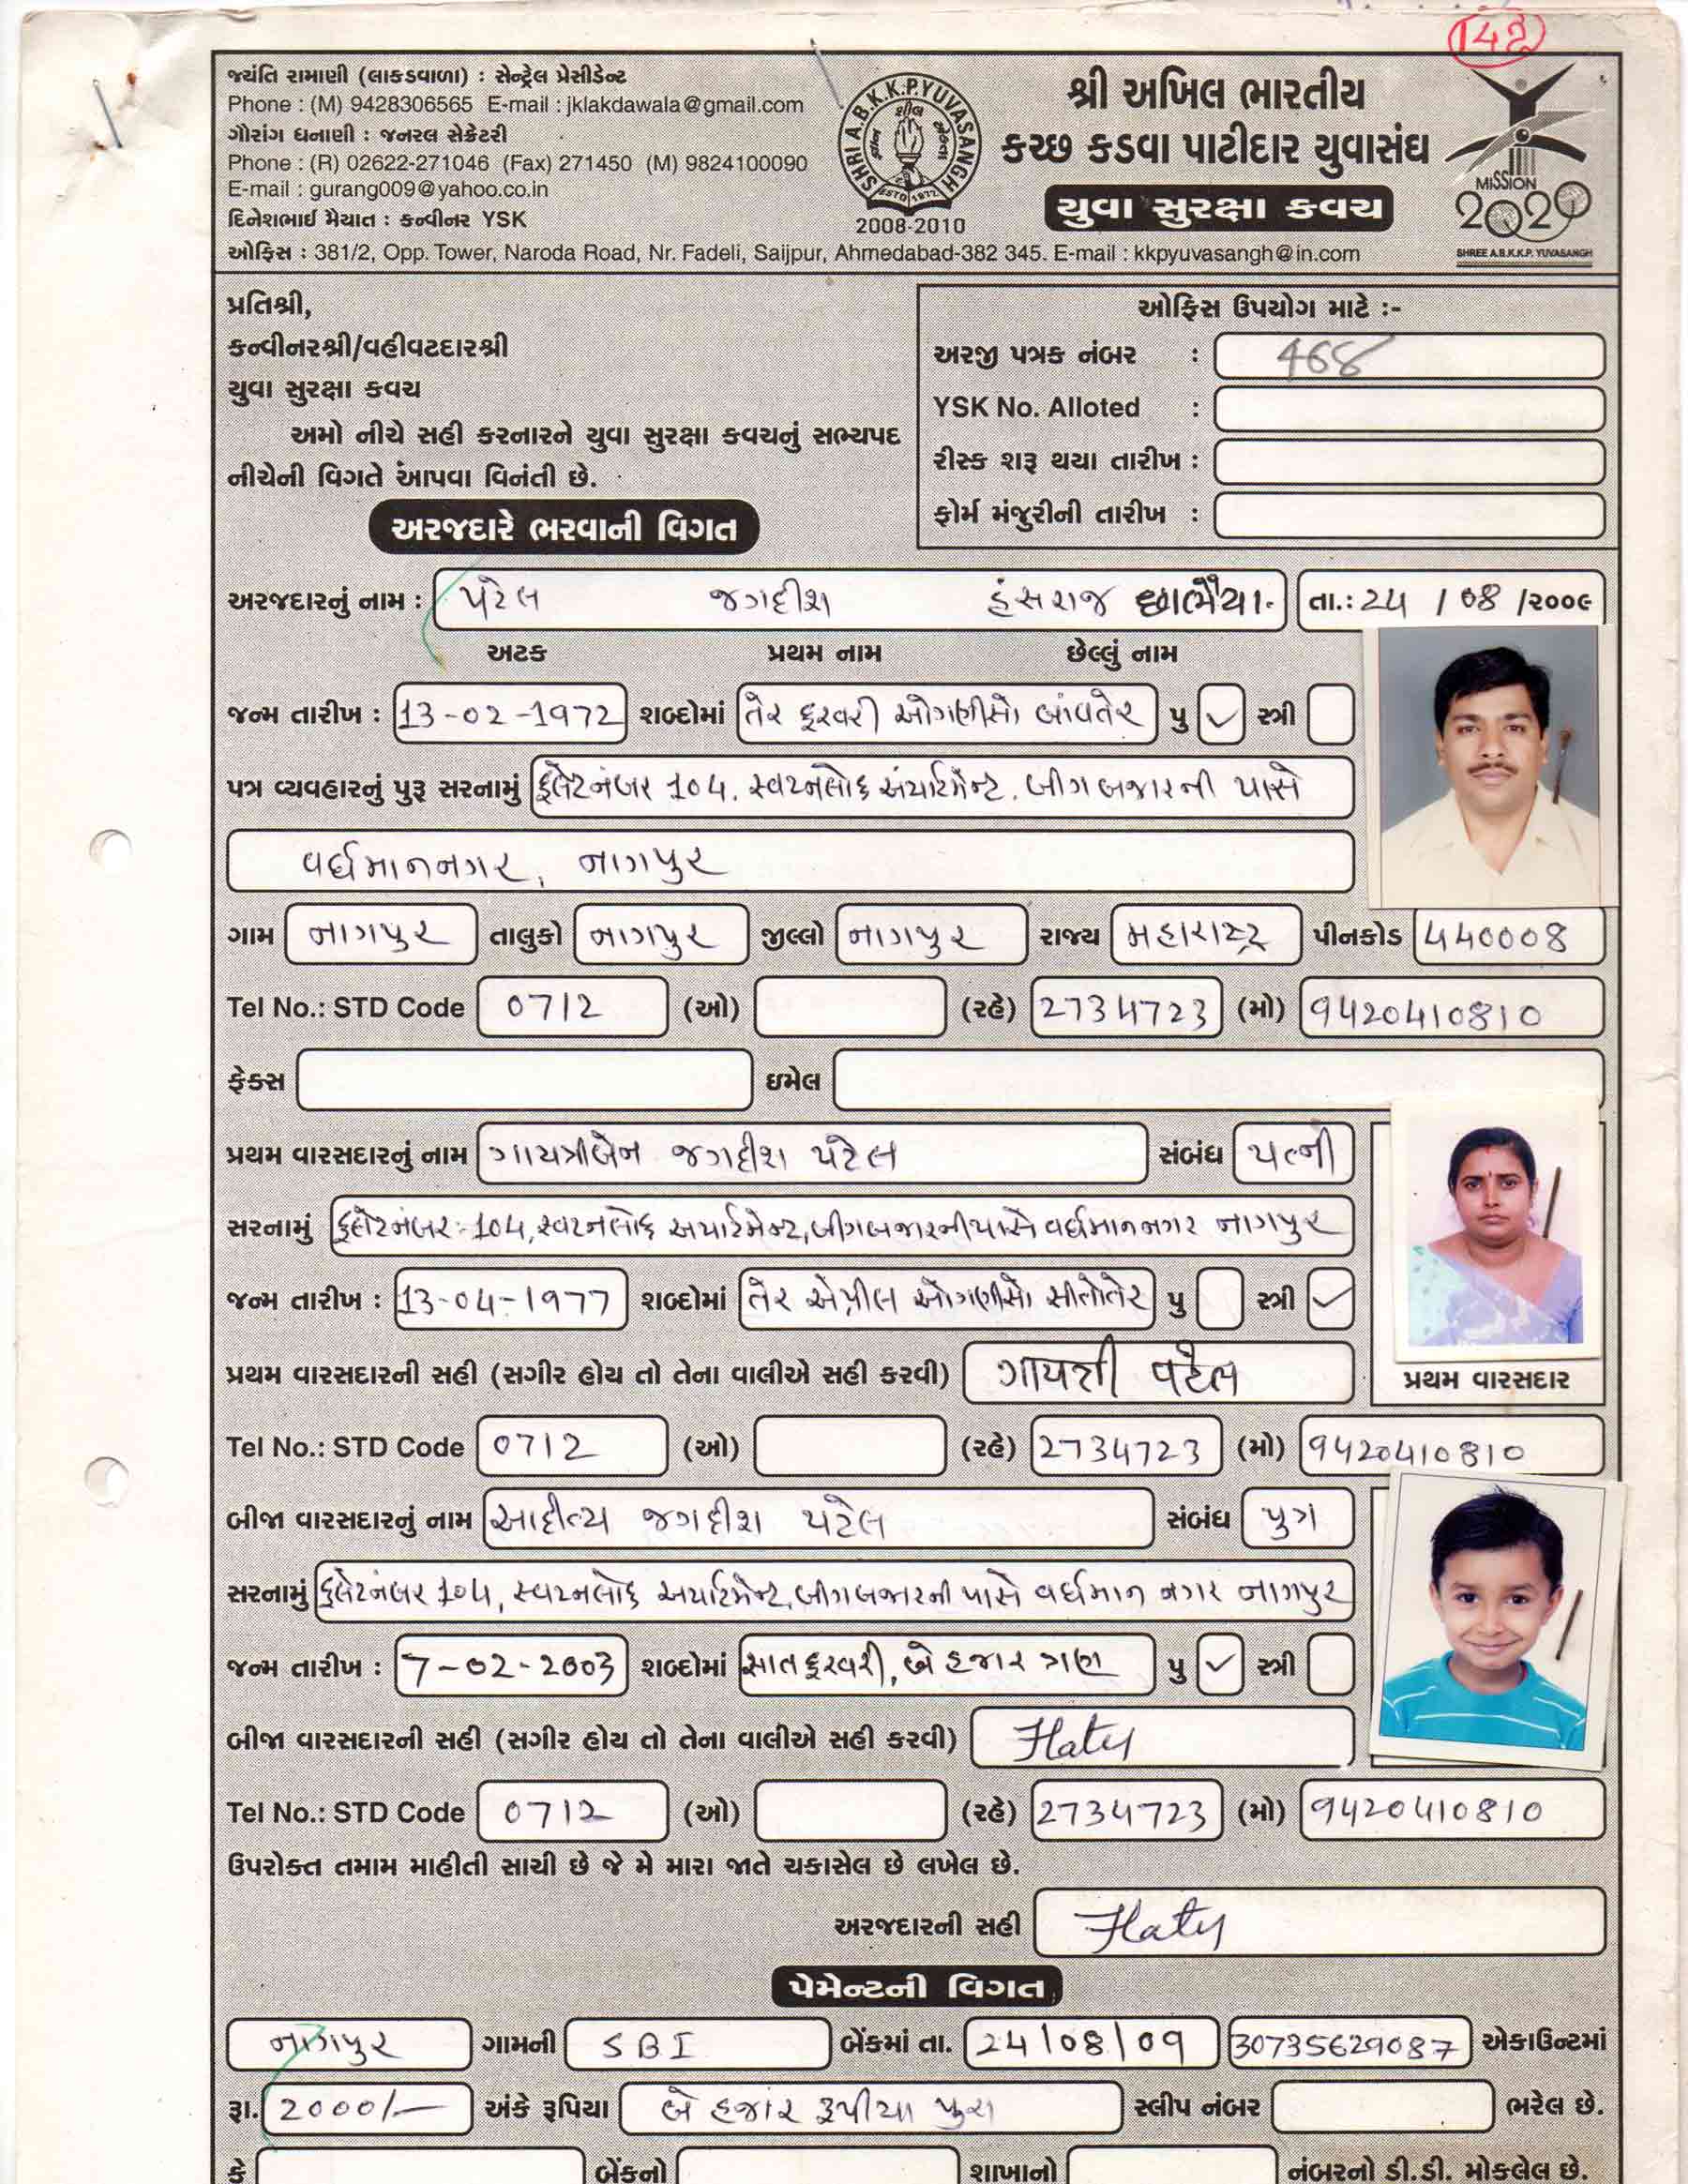 142
જયંતિ રામાણી (લાકડવાળા) : સેન્ટ્રેલ પ્રેસીડેન્ટ
Phone : (M) 9428306565 E-mail : jklakdawala@gmail.com
ગૌરાંગ ધનાણી : જનરલ સેક્રેટરી
Phone : (R) 02622-271046 (Fax) 271450 (M) 9824100090
E-mail : gurang009@yahoo.co.in
દિનેશભાઈ મૈયાત : કન્વીનર YSK
SHRI A.B.K.K.P. YUVASANGH
ESTD 1972
2008-2010
શ્રી અખિલ ભારતીય
કચ્છ કડવા પાટીદાર યુવાસંઘ
યુવા સુરક્ષા કવચ
MISSION
2020
SHREE A.B.K.K.P. YUVASANGH
ઓફિસ : 381/2, Opp. Tower, Naroda Road, Nr. Fadeli, Saijpur, Ahmedabad-382 345. E-mail : kkpyuvasangh@in.com
પ્રતિશ્રી,
કન્વીનરશ્રી/વહીવટદારશ્રી
યુવા સુરક્ષા કવચ
અમો નીચે સહી કરનારને યુવા સુરક્ષા કવચનું સભ્યપદ
નીચેની વિગતે આપવા વિનંતી છે.
ઓફિસ ઉપયોગ માટે :-
અરજી પત્રક નંબર : 468
YSK No. Alloted :
રીસ્ક શરૂ થયા તારીખ :
ફોર્મ મંજુરીની તારીખ :
અરજદારે ભરવાની વિગત
અરજદારનું નામ : પટેલ જગદીશ હંસરાજ છાભૈયા. તા.: 24 / 08 /૨૦૦૯
અટક પ્રથમ નામ છેલ્લું નામ
જન્મ તારીખ : 13-02-1972 શબ્દોમાં તેર ફરવરી ઓગણીસો બાંવતેર પુ ✓ સ્ત્રી
પત્ર વ્યવહારનું પુરૂ સરનામું ફલેટનંબર 104, સ્વપ્નલોક અપાર્ટમેન્ટ, બીગબજારની પાસે
વર્ધમાનનગર, નાગપુર
ગામ નાગપુર તાલુકો નાગપુર જીલ્લો નાગપુર રાજ્ય મહારાષ્ટ્ર પીનકોડ 440008
Tel No.: STD Code 0712 (ઓ) (રહે) 2734723 (મો) 9420410810
ફેક્સ ઇમેલ
પ્રથમ વારસદારનું નામ ગાયત્રીબેન જગદીશ પટેલ સંબંધ પત્ની
સરનામું ફલેટનંબર-104, સ્વપ્નલોક અપાર્ટમેન્ટ, બીગબજારનીપાસે વર્ધમાનનગર નાગપુર
જન્મ તારીખ : 13-04-1977 શબ્દોમાં તેર એપ્રીલ ઓગણીસો સીતોતેર પુ સ્ત્રી ✓
પ્રથમ વારસદારની સહી (સગીર હોય તો તેના વાલીએ સહી કરવી) ગાયત્રી પટેલ
પ્રથમ વારસદાર
Tel No.: STD Code 0712 (ઓ) (રહે) 2734723 (મો) 9420410810
બીજા વારસદારનું નામ આદીત્ય જગદીશ પટેલ સંબંધ પુત્ર
સરનામું ફલેટનંબર 104, સ્વપ્નલોક અપાર્ટમેન્ટ, બીગબજારની પાસે વર્ધમાન નગર નાગપુર
જન્મ તારીખ : 7-02-2003 શબ્દોમાં સાત ફરવરી, બે હજાર ત્રણ પુ ✓ સ્ત્રી
બીજા વારસદારની સહી (સગીર હોય તો તેના વાલીએ સહી કરવી)
Tel No.: STD Code 0712 (ઓ) (રહે) 2734723 (મો) 9420410810
ઉપરોક્ત તમામ માહીતી સાચી છે જે મે મારા જાતે ચકાસેલ છે લખેલ છે.
અરજદારની સહી
પેમેન્ટની વિગત
નાગપુર ગામની SBI બેંકમાં તા. 24/08/09 30735629087 એકાઉન્ટમાં
રૂા. 2000/- અંકે રૂપિયા બે હજાર રૂપીયા પુરા સ્લીપ નંબર ભરેલ છે.
કે બેંકનો શાખાનો નંબરનો ડી.ડી. મોકલેલ છે.